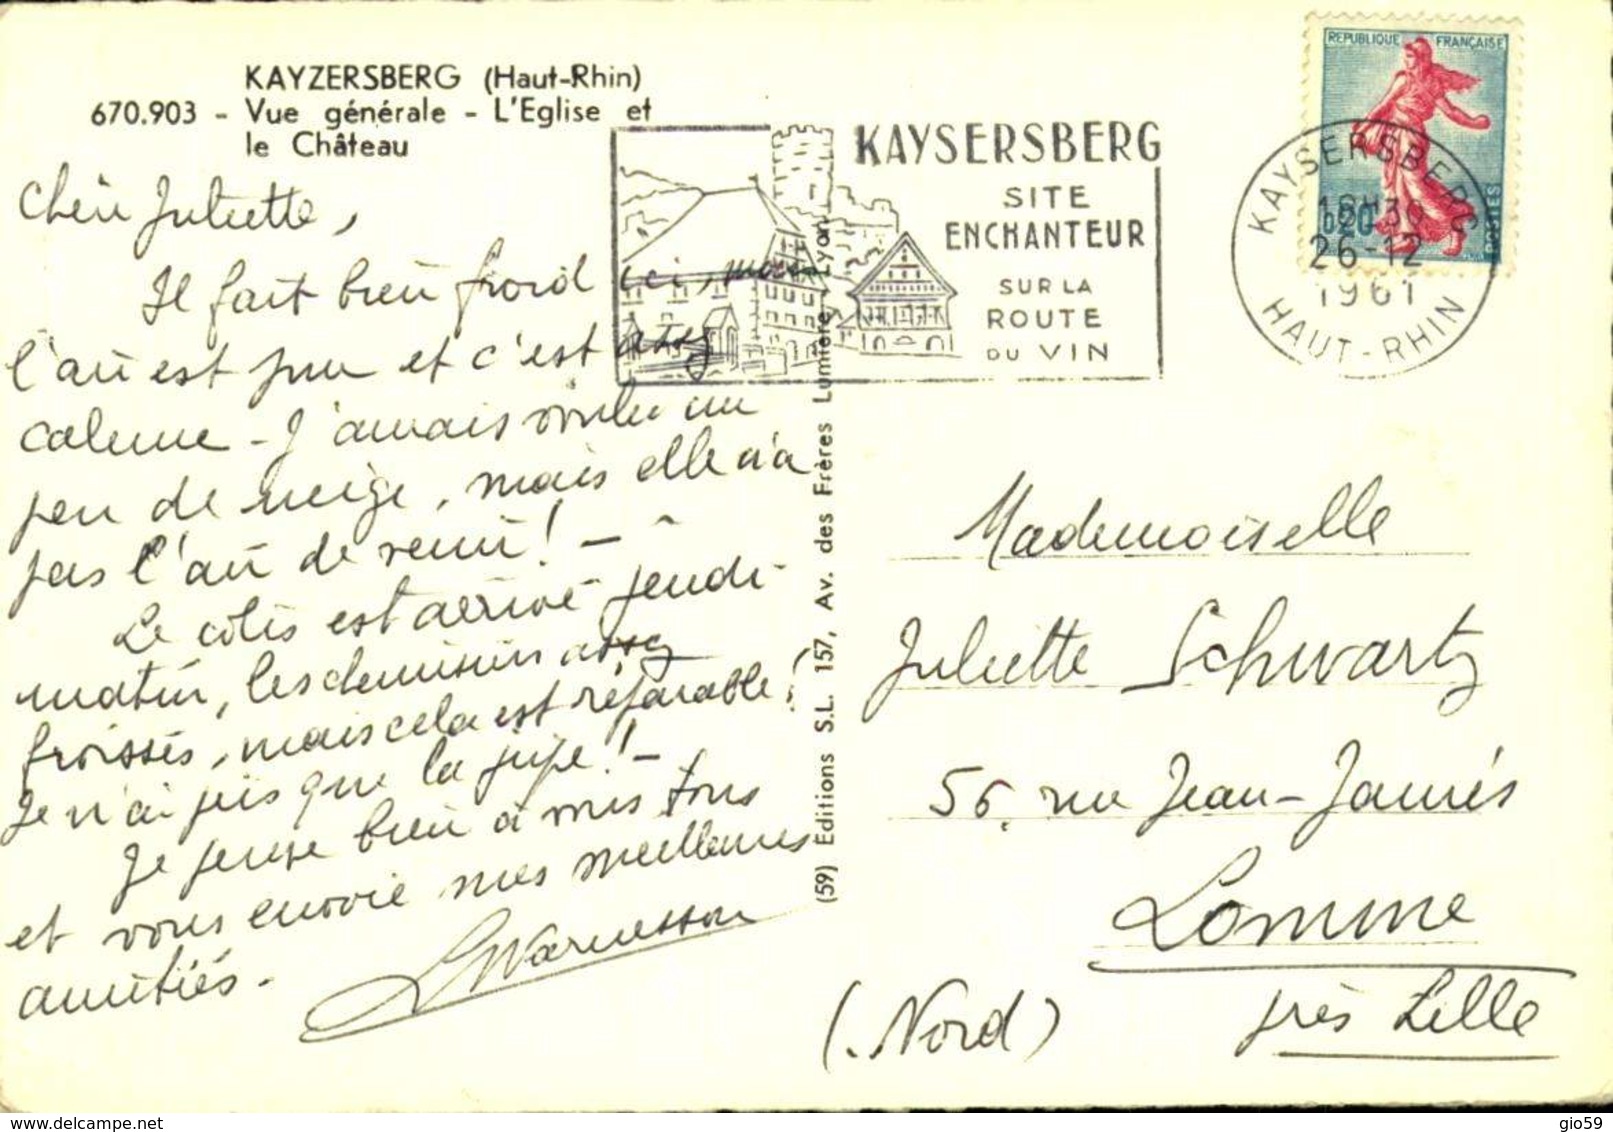 KAYZERSBERG (Haut-Rhin)
670.903 - Vue générale - L'Eglise et
le Château
Chère Juliette,
Il fait bien froid ici, mais
l'air est pur et c'est assez
calme - J'aurais voulu un
peu de neige, mais elle n'a
pas l'air de venir! -
Le colis est arrivé jeudi
matin, les chemisiers assez
froissés, mais cela est réparable!
Je n'ai pris que la jupe! -
Je pense bien à vous tous
et vous envoie mes meilleures
amitiés.
LWarnesson
(59) Editions S.L. 157, Av. des Frères Lumière Lyon
KAYSERSBERG
SITE
ENCHANTEUR
SUR LA
ROUTE
DU VIN
REPUBLIQUE FRANÇAISE
0,20
POSTES
KAYSERSBERG
18H30
26-12
1961
HAUT-RHIN
Mademoiselle
Juliette Schwartz
56, rue Jean-Jaurès
Lomme
(Nord) près Lille
gio59